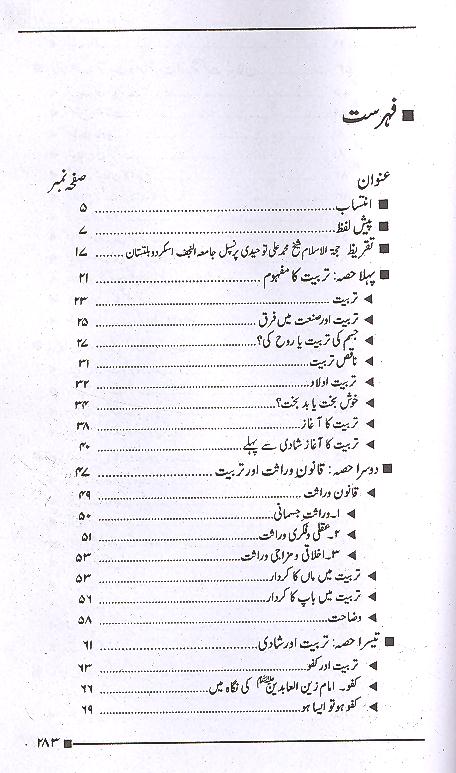 ■ فہرست
عنوان صفحہ نمبر
■ انتساب ۵
■ پیش لفظ ۷
■ تقریظ حجۃ الاسلام شیخ محمد علی توحیدی پرنسپل جامعۃ النجف اسکردو بلتستان ۱۷
■ پہلا حصہ: تربیت کا مفہوم ۲۱
◄ تربیت ۲۳
◄ تربیت اور صنعت میں فرق ۲۵
◄ جسم کی تربیت یا روح کی؟ ۲۷
◄ ناقص تربیت ۳۱
◄ تربیت اولاد ۳۲
◄ خوش بخت یا بد بخت؟ ۳۴
◄ تربیت کا آغاز ۳۸
◄ تربیت کا آغاز شادی سے پہلے ۴۰
■ دوسرا حصہ: قانونِ وراثت اور تربیت ۴۷
◄ قانون وراثت ۴۹
◄ ۱۔وراثتِ جسمانی ۵۰
◄ ۲۔عقلی و فکری وراثت ۵۱
◄ ۳۔اخلاقی و مزاجی وراثت ۵۳
◄ تربیت میں ماں کا کردار ۵۳
◄ تربیت میں باپ کا کردار ۵۶
◄ وضاحت ۵۸
■ تیسرا حصہ: تربیت اور شادی ۶۱
◄ تربیت اور کفو ۶۳
◄ کفو۔ امام زین العابدینؑ کی نگاہ میں ۶۶
◄ کفو ہو تو ایسا ہو ۶۹
۲۸۳ ■